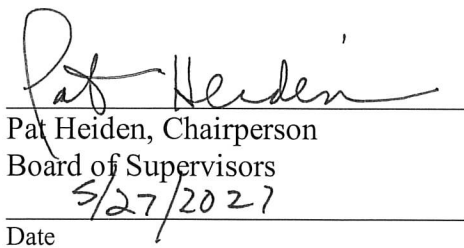 Pat Heiden
Pat Heiden, Chairperson
Board of Supervisors
5/27/2027
Date